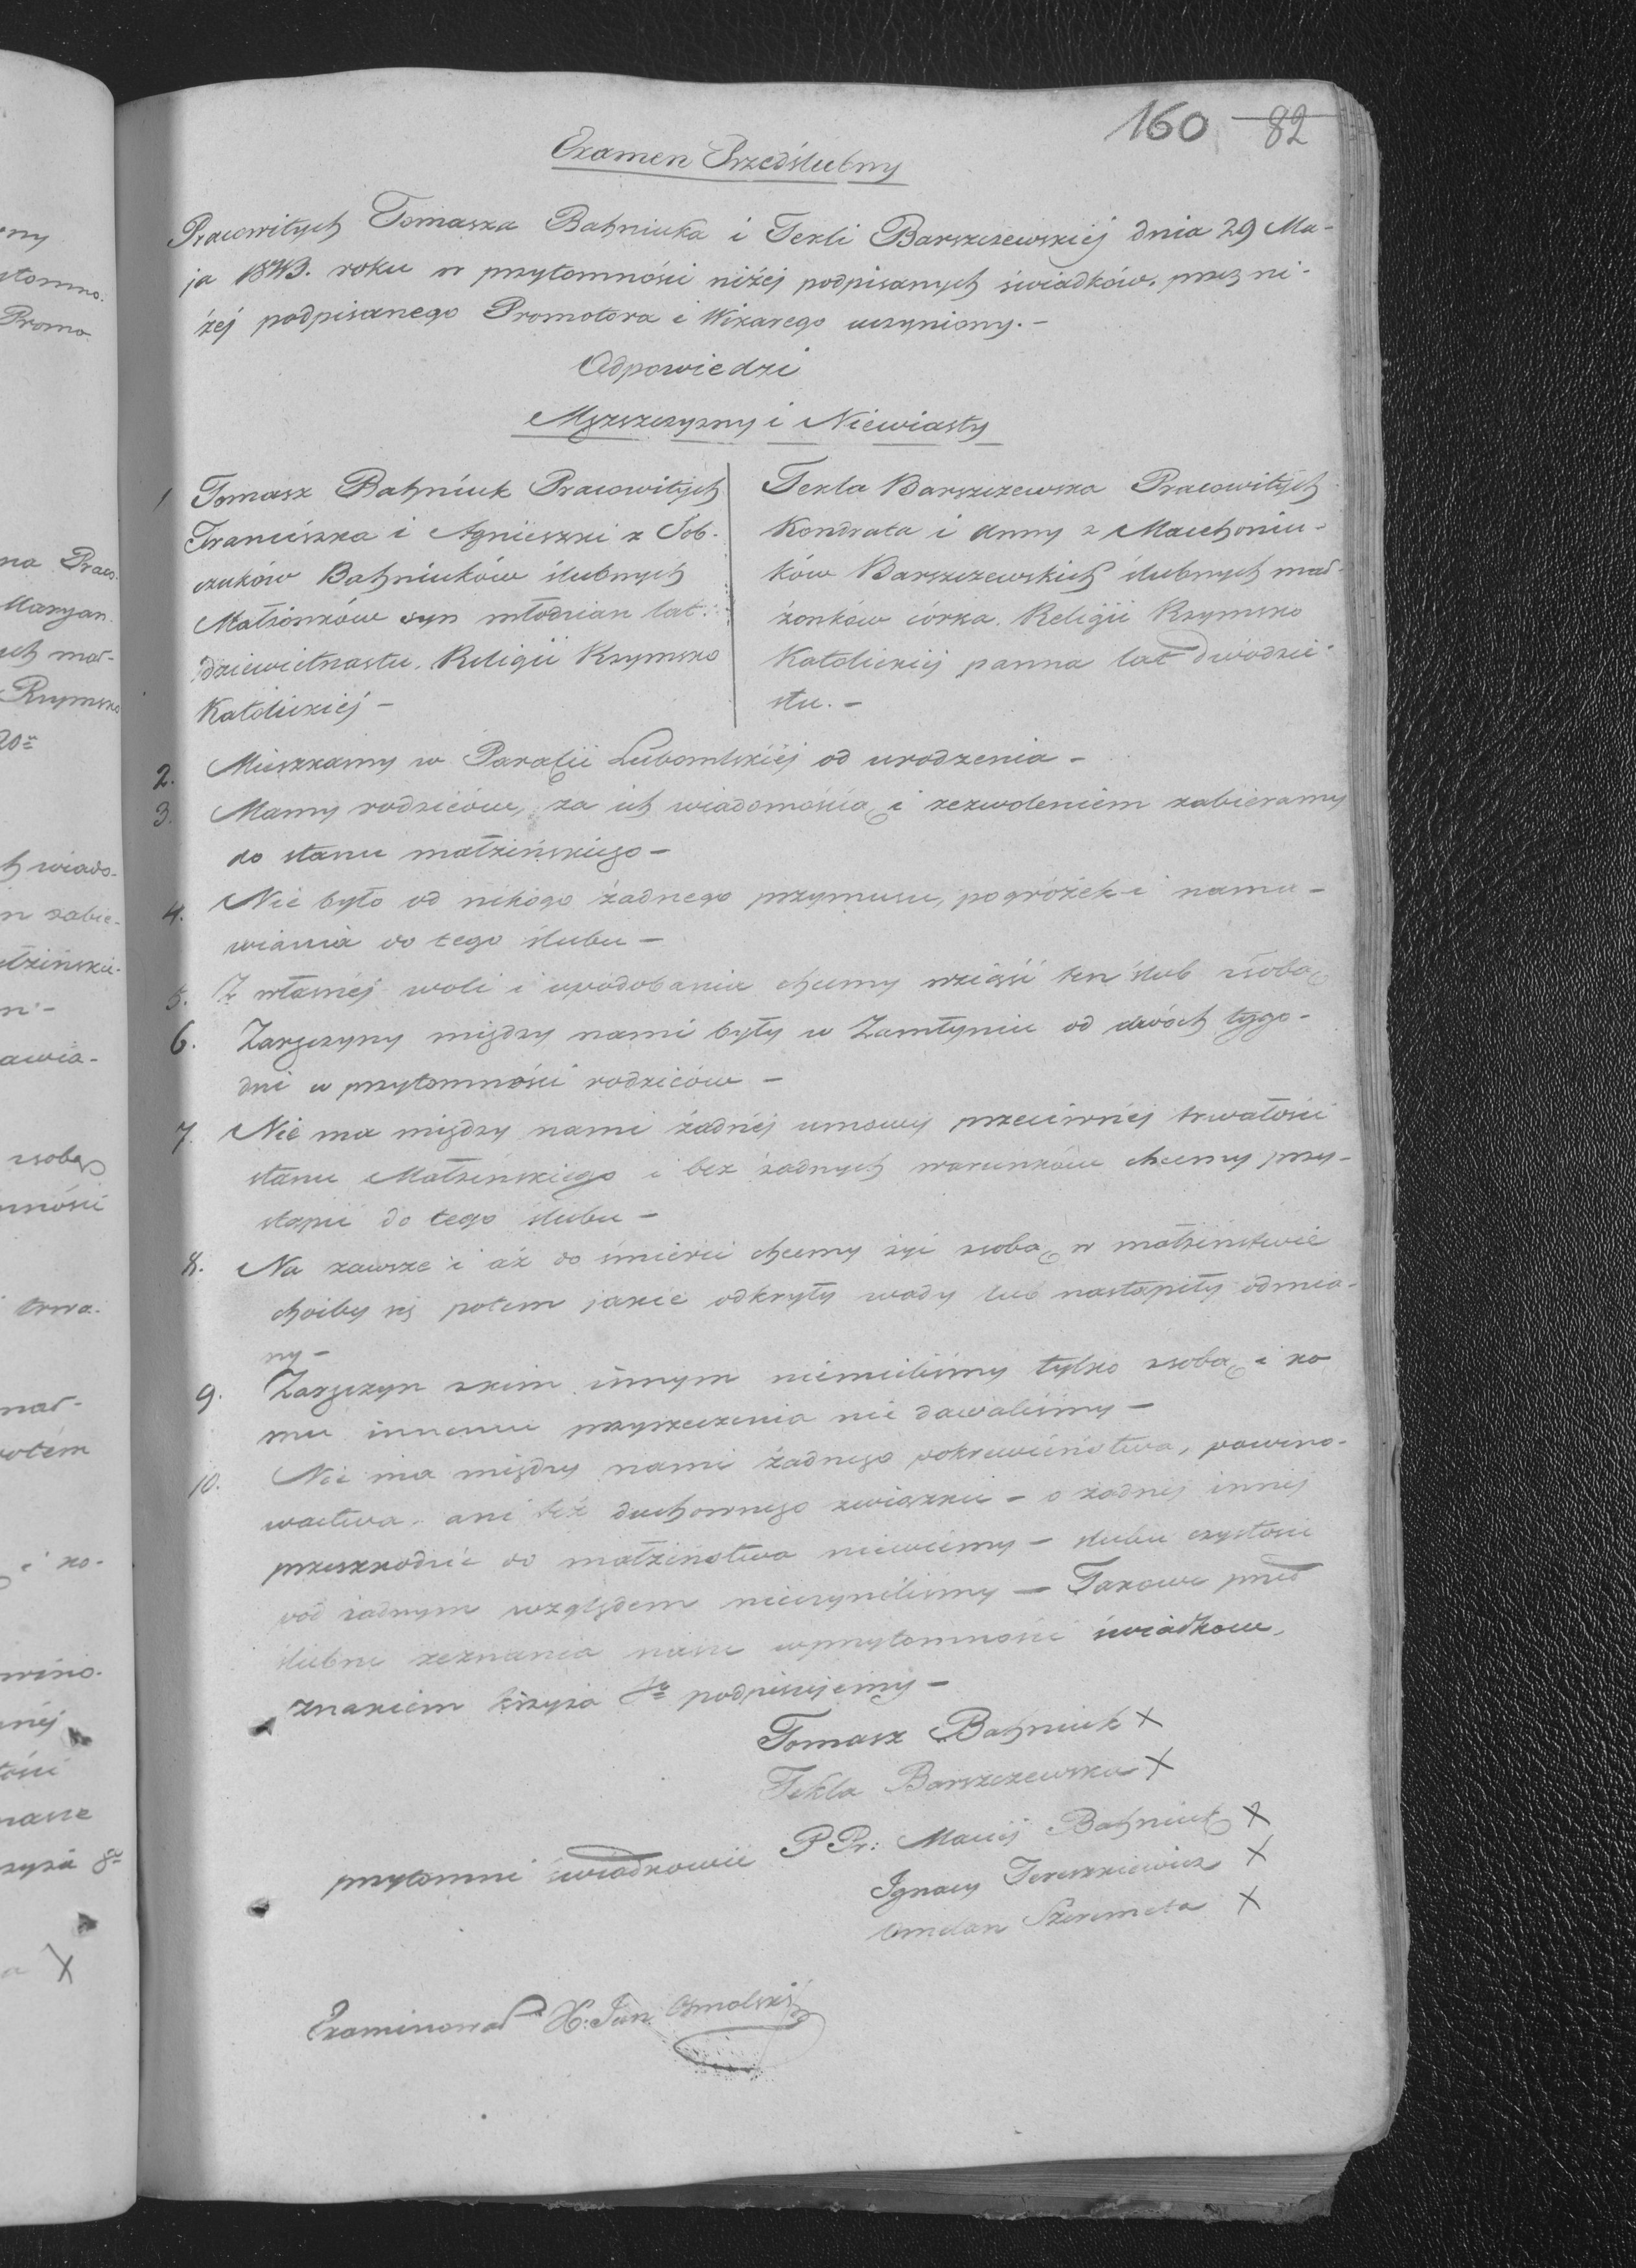 160 82
Examen Przedślubny
Pracowitych Tomasza Bahniuka i Tekli Barszczewskiej dnia 29 Ma-
ja 1843. roku w przytomności niżéj podpisanych świadków. przez ni-
żéj podpisanego Promotora i Wikarego uczyniony. -
Odpowiedzi
Męszczyzny i Niewiasty
1 Tomasz Bahniuk Pracowitych
Franciszka i Agnieszki z Sob-
czuków Bahniuków ślubnych
Małżonków syn młodzian lat
dziewietnastu. Religii Rzymsko
Katolickiéj -
Tekla Barszczewska Pracowitych
Kondrata i Anny z Maichoniu-
ków Barszczewskich ślubnych mał-
żonków córka. Religii Rzymsko
Katolickiéj panna lat dwódzie-
stu. -
2. Mieszkamy w Parafii Lubomlskiéj od urodzenia -
3. Mamy rodziców, za ich wiadomością i zezwoleniem zabieramy
do stanu małżeńskiego -
4. Nie było od nikogo żadnego przymusu, pogróżek i nama-
wiania do tego ślubu -
5. Z własnéj woli i upodobania chcemy wziąść ten ślub zsobą
6. Zaręczyny między nami były w Zamłyniu od dwóch tygo-
dni w przytomności rodziców -
7. Nie ma między nami żadnéj umowy przeciwnéj trwałości
stanu Małżenskiego i bez żadnych warunków chcemy przy-
stąpić do tego ślubu -
8. Na zawsze i aż do śmierci chcemy żyć zsobą w małżeństwie
choćby się potem jakie odkryły wady lub nastąpiły odmia-
ny -
9. Zaręczyn zkim innym niemieliśmy tylko zsobą i ko
mu innemu przyrzeczenia nie dawaliśmy -
10. Nie ma między nami żadnego pokrewieństwa, powino-
wactwa. ani też duchownego związku - o żadnéj innéj
przeszkodzie do małżeństwa niewiemy - ślubu czystości
pod żadnym względem nieczyniliśmy - Takowe przed
ślubne zeznania nasze wprzytomności świadków,
znakiem krzyża Sgo podpisujemy -
Tomasz Bahniuk X
Tekla Barszczewska X
przytomni świadkowie PPr: Maciéj Bahniuk X
Ignacy Tereszkiewicz X
Omelan Szeremeta X
Examinował X. Jan Osmolski